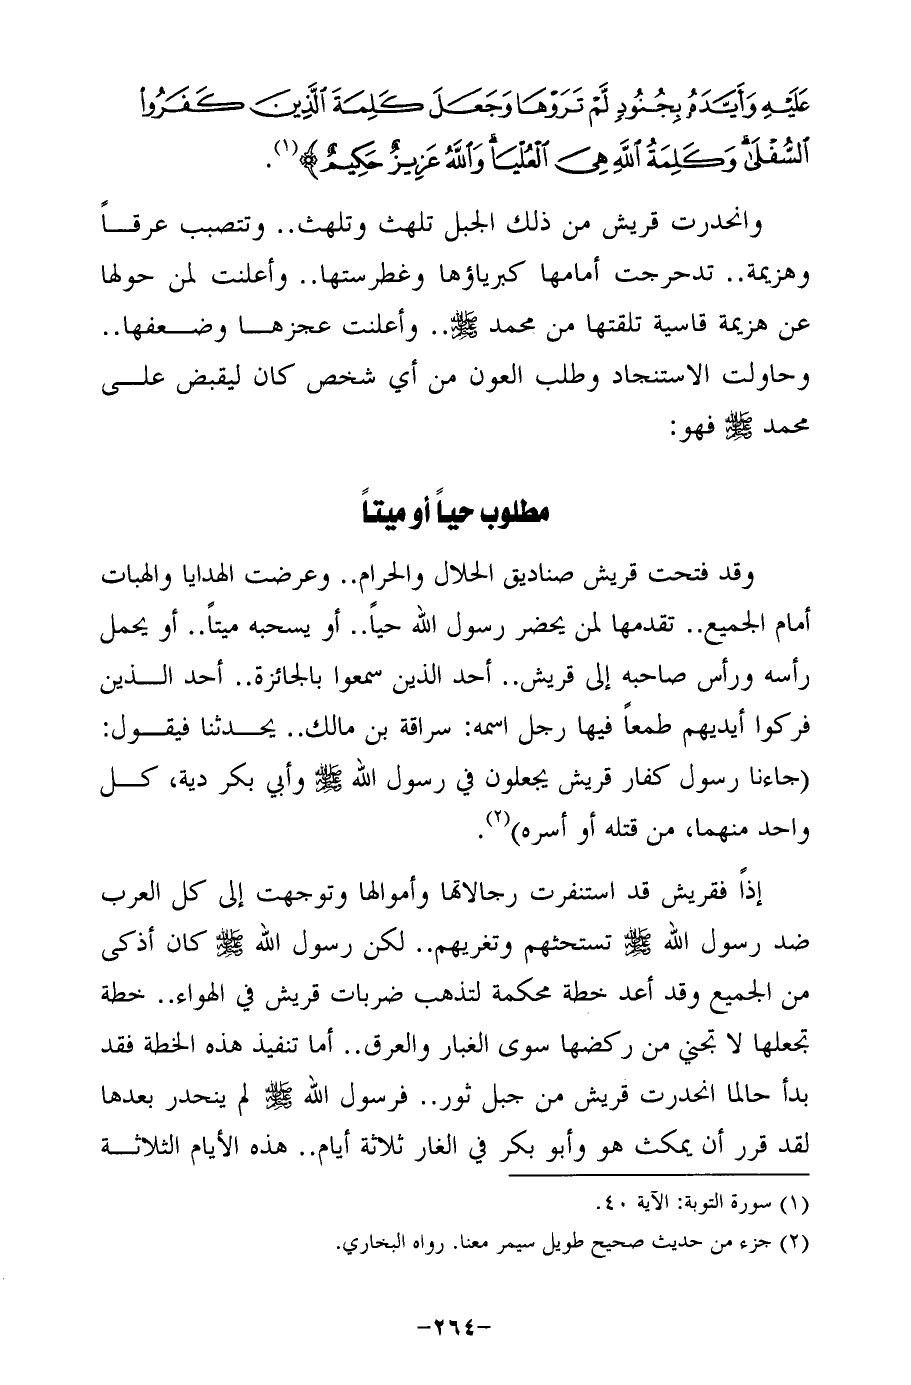 عَلَيْهِ وَأَيَّدَهُ بِجُنُودٍ لَّمْ تَرَوْهَا وَجَعَلَ كَلِمَةَ الَّذِينَ كَفَرُوا
السُّفْلَىٰ وَكَلِمَةُ اللَّهِ هِيَ الْعُلْيَا وَاللَّهُ عَزِيزٌ حَكِيمٌ﴾(١).
وانحدرت قريش من ذلك الجبل تلهث وتلهث.. وتتصبب عرقـــاً
وهزيمة.. تدحرجت أمامها كبرياؤها وغطرستها.. وأعلنت لمن حولها
عن هزيمة قاسية تلقتها من محمد ﷺ.. وأعلنت عجزهـــا وضـــعفها..
وحاولت الاستنجاد وطلب العون من أي شخص كان ليقبض علـــى
محمد ﷺ فهو:
مطلوب حياً أو ميتاً
وقد فتحت قريش صناديق الحلال والحرام.. وعرضت الهدايا والهبات
أمام الجميع.. تقدمها لمن يحضر رسول الله حياً.. أو يسحبه ميتاً.. أو يحمل
رأسه ورأس صاحبه إلى قريش.. أحد الذين سمعوا بالجائزة.. أحد الـــذين
فركوا أيديهم طمعاً فيها رجل اسمه: سراقة بن مالك.. يحـــدثنا فيقـــول:
(جاءنا رسول كفار قريش يجعلون في رسول الله ﷺ وأبي بكر دية، كـــل
واحد منهما، من قتله أو أسره)(٢).
إذاً فقريش قد استنفرت رجالاتها وأموالها وتوجهت إلى كل العرب
ضد رسول الله ﷺ تستحثهم وتغريهم.. لكن رسول الله ﷺ كان أذكى
من الجميع وقد أعد خطة محكمة لتذهب ضربات قريش في الهواء.. خطة
تجعلها لا تجني من ركضها سوى الغبار والعرق.. أما تنفيذ هذه الخطة فقد
بدأ حالما انحدرت قريش من جبل ثور.. فرسول الله ﷺ لم ينحدر بعدها
لقد قرر أن يمكث هو وأبو بكر في الغار ثلاثة أيام.. هذه الأيام الثلاثـــة
(١) سورة التوبة: الآية ٤٠.
(٢) جزء من حديث صحيح طويل سيمر معنا. رواه البخاري.
-٢٦٤-